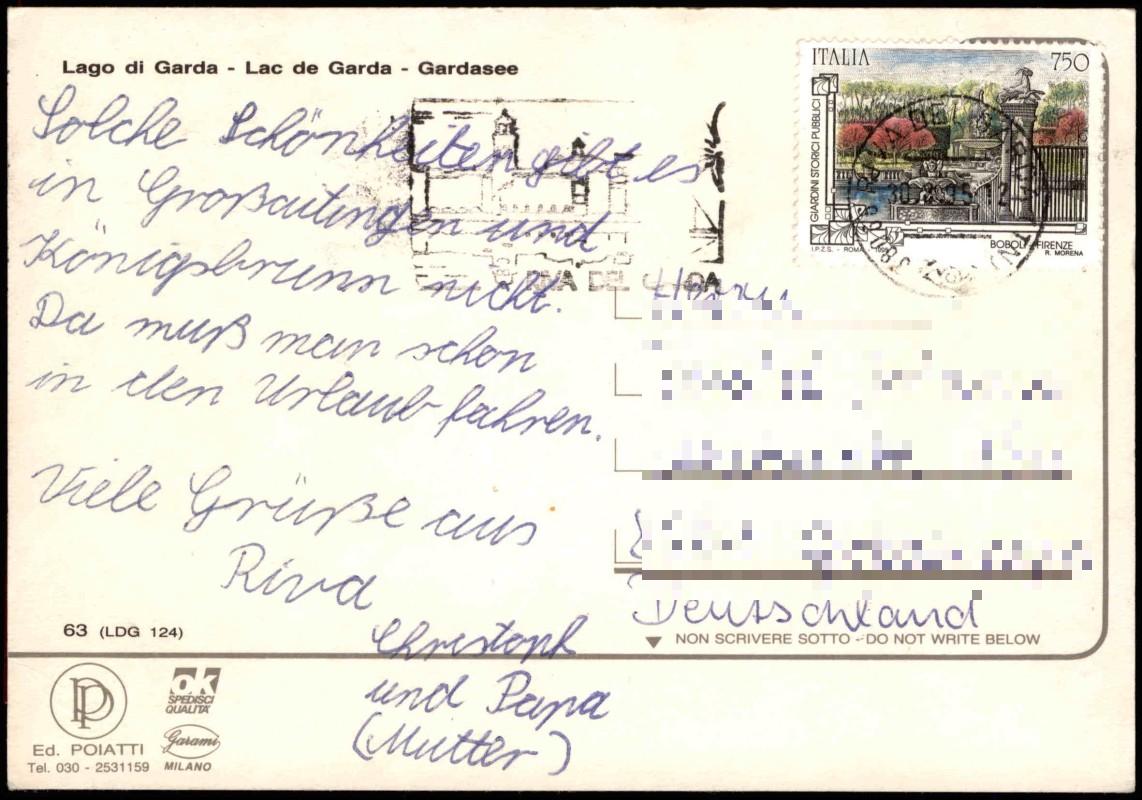 Lago di Garda - Lac de Garda - Gardasee
Solche Schönheiten gibt es
in Großaitingen und
Königsbrunn nicht.
Da muß man schon
in den Urlaub fahren.
Viele Grüße aus
Riva
Christoph
und Papa
(Mutter)
63 (LDG 124)
PD
Ed. POIATTI
Tel. 030 - 2531159
ok
SPEDISCI
QUALITA'
Garami
MILANO
ITALIA 750
GIARDINI STORICI PUBBLICI
I.P.Z.S. - ROMA
BOBOLI - FIRENZE
R. MORENA
RIVA DEL GARDA
Deutschland
NON SCRIVERE SOTTO - DO NOT WRITE BELOW